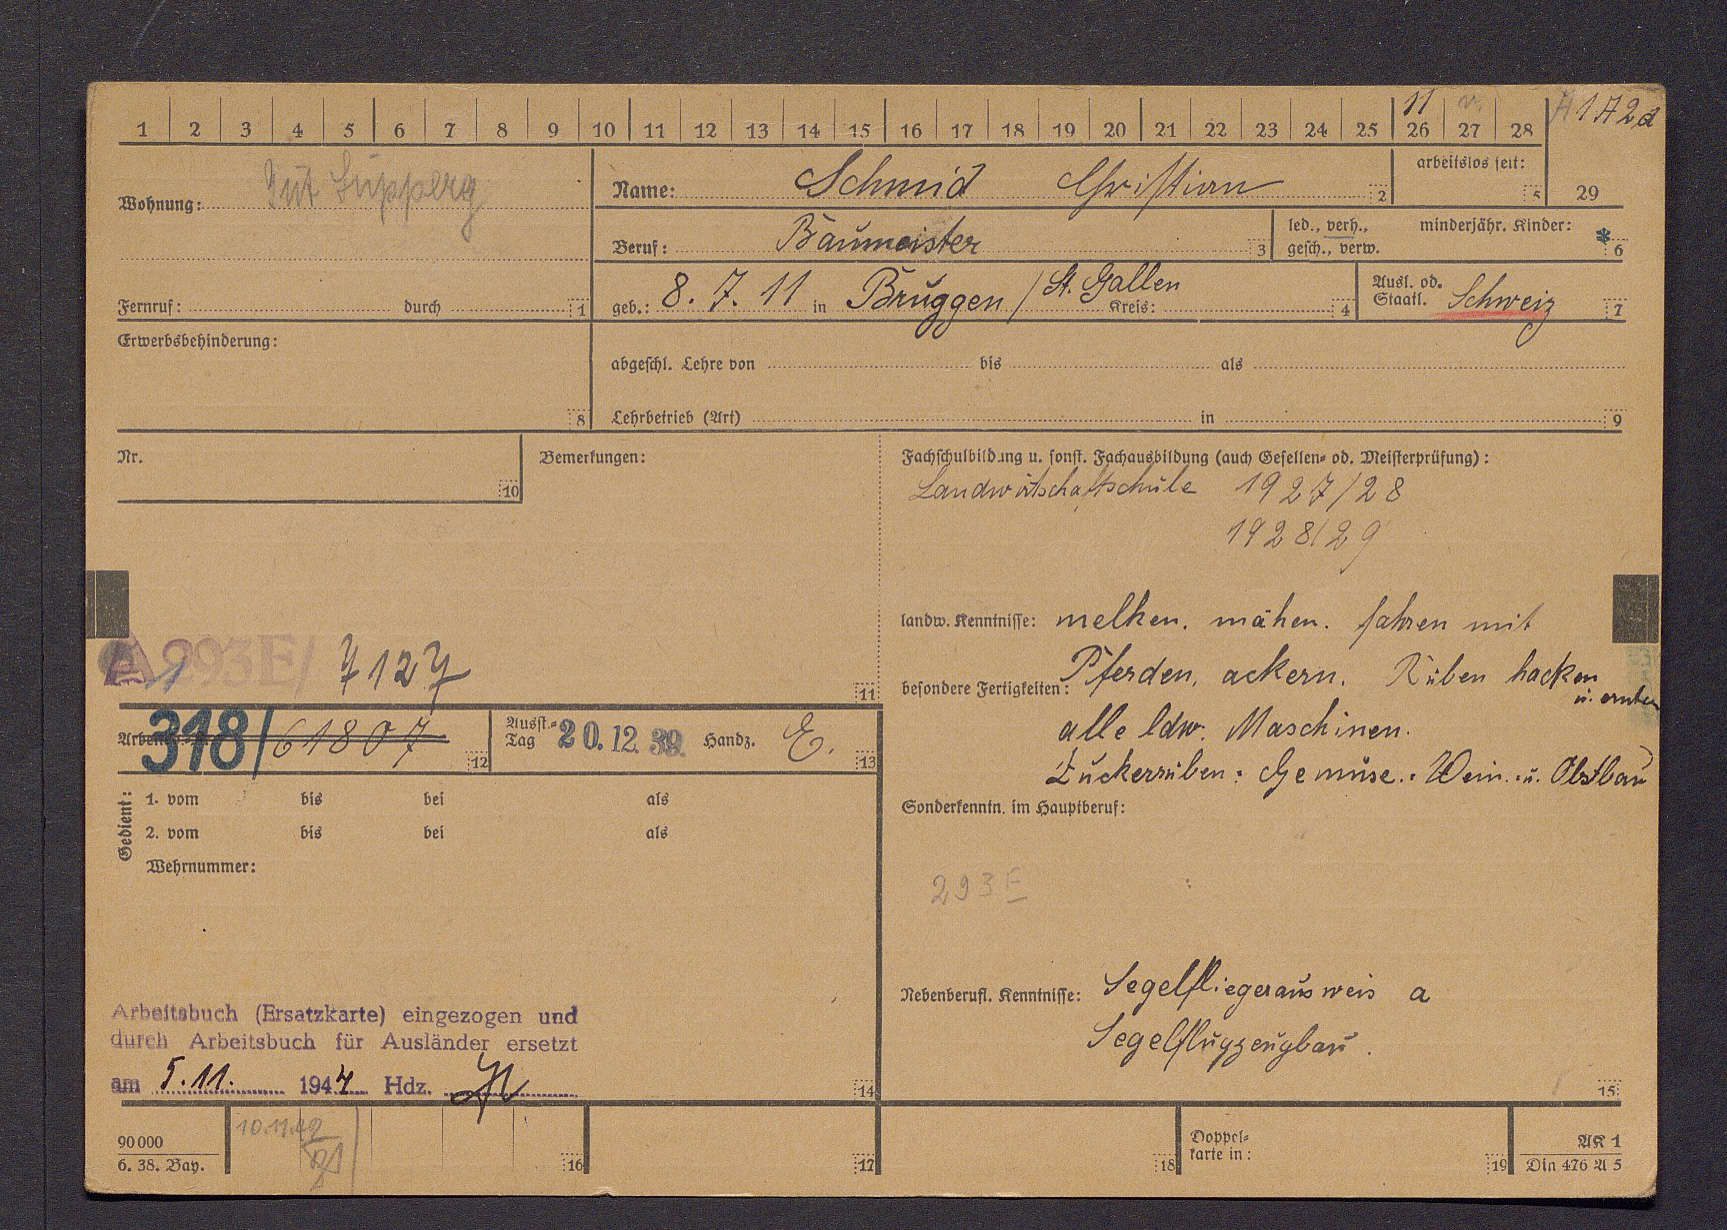 1 2 3 4 5 6 7 8 9 10 11 12 13 14 15 16 17 18 19 20 21 22 23 24 25 26 27 28
11
1 A 2 d
Wohnung: Gut
Name: Schmid Christian 2
arbeitslos seit: 5
29
Beruf: Baumeister 3
led., verh., gesch., verw.
minderjähr. Kinder: * 6
Fernruf: durch 1
geb.: 8. 7. 11 in Bruggen / St. Gallen Kreis: 4
Ausl. od. Staatl. Schweiz 7
Erwerbsbehinderung: 8
abgeschl. Lehre von bis als
Lehrbetrieb (Art) in 9
Nr. 10
Bemerkungen:
A 293E/ 7127 11
Fachschulbildung u. sonst. Fachausbildung (auch Gesellen- od. Meisterprüfung):
Landwirtschaftschule 1927/28
1928/29
landw. Kenntnisse: melken. mähen. fahren mit
besondere Fertigkeiten: Pferden, ackern. Rüben hacken
u. ernten
alle ldw. Maschinen.
Zuckerrüben: Gemüse.. Wein.. u. Obstbau
Sonderkenntn. im Hauptberuf:
293E
Nebenberufl. Kenntnisse: Segelfliegerausweis a
Segelflugzeugbau.
15
318/61807 12
Ausst.-Tag 20. 12. 39. Handz. E. 13
Gedient:
1. vom bis bei als
2. vom bis bei als
Wehrnummer:
Arbeitsbuch (Ersatzkarte) eingezogen und
durch Arbeitsbuch für Ausländer ersetzt
am 5.11. 1944 Hdz.
14
90 000
6. 38. Bay.
10.11.42
16
17
18
Doppel-
karte in: 19
AK 1
Din 476 A 5